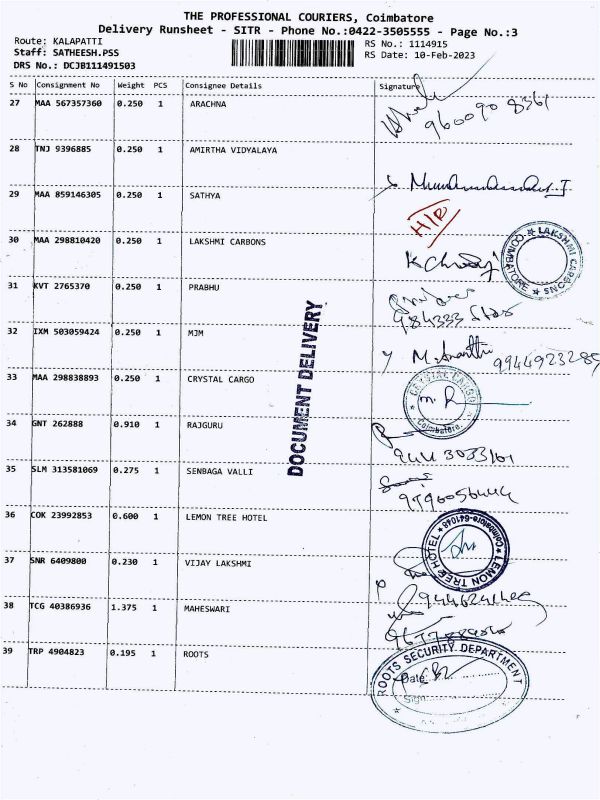 THE PROFESSIONAL COURIERS, Coimbatore
Delivery Runsheet - SITR - Phone No.:0422-3505555 - Page No.:3
Route: KALAPATTI
RS No.: 1114915
Staff: SATHEESH.PSS
RS Date: 10-Feb-2023
DRS No.: DCJB111491503
S No Consignment No Weight PCS Consignee Details Signature
27 MAA 567357360 0.250 1 ARACHNA
9600908361
28 TNJ 9396885 0.250 1 AMIRTHA VIDYALAYA
29 MAA 859146305 0.250 1 SATHYA
H/D
30 MAA 298810420 0.250 1 LAKSHMI CARBONS
LAKSHMI CARBONS COIMBATORE
31 KVT 2765370 0.250 1 PRABHU
32 IXM 503059424 0.250 1 MJM
M. Ananthi 9944923289
33 MAA 298838893 0.250 1 CRYSTAL CARGO
CRYSTAL CARGO Coimbatore.
34 GNT 262888 0.910 1 RAJGURU
35 SLM 313581069 0.275 1 SENBAGA VALLI
36 COK 23992853 0.600 1 LEMON TREE HOTEL
LEMON TREE HOTEL Coimbatore-641048
37 SNR 6409800 0.230 1 VIJAY LAKSHMI
38 TCG 40386936 1.375 1 MAHESWARI
39 TRP 4904823 0.195 1 ROOTS
ROOTS SECURITY DEPARTMENT
Date:
Sign
DOCUMENT DELIVERY